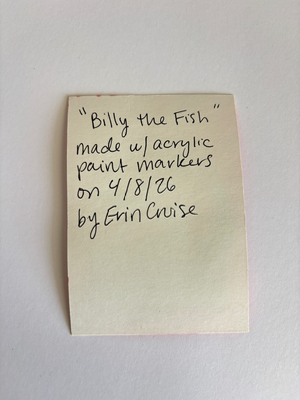 "Billy the Fish"
made w/ acrylic
paint markers
on 4/8/26
by Erin Cruise